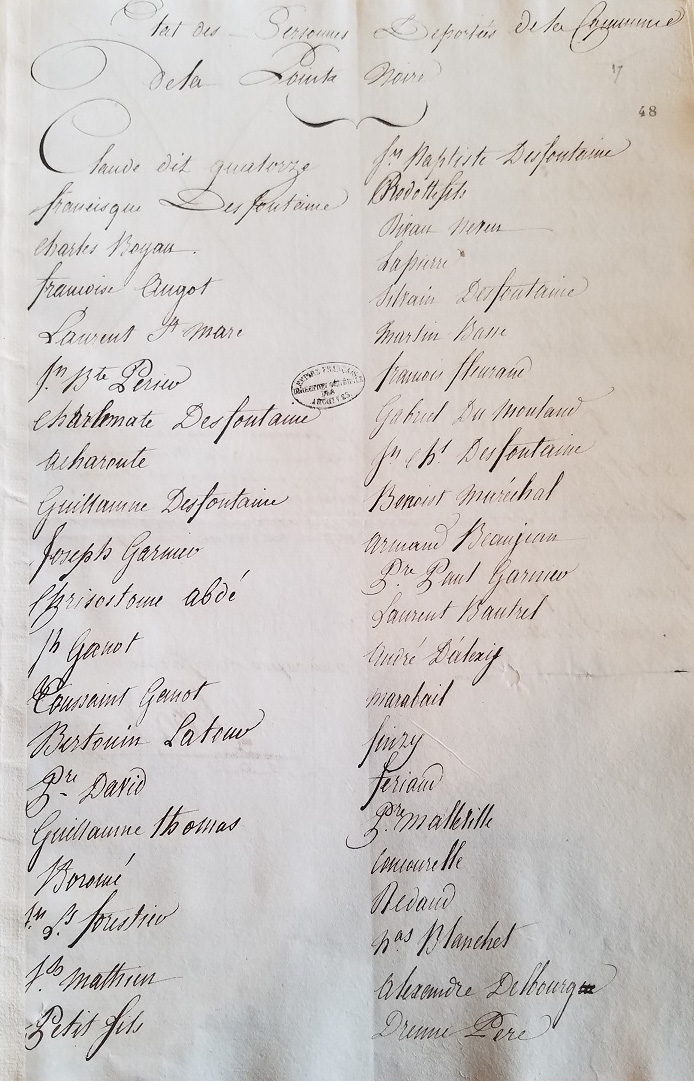 Etat des Personnes Déportées de la Commune
De la Pointe Noire
7
48
Claude dit quatorze
francisque Desfontaine
Charles Boyau.
francoise Augot
Laurent St marc
Jn Bte Périer
Desfontaine
acharoute
Guillaume Desfontaine
Joseph Garnier
Chrisostome abdé
Jh Ganot
Toussaint Ganot
Bertouin Latour
Pre David
Guillaume thomas
Boromé
Jn Ls forestier
mathieu
Petit fils
Jn Baptiste Desfontaine
Rodotte fils
Lapierre
Silvain Desfontaine
Martin Basse
francois fleuraud
Gabriel Du Moulard
Jn Desfontaine
Benoist Maréchal
Armand Beaujean
Pre Paul Garnier
Laurent Bautrel
André Dalexis
marabait
finzy
feriaud
Pre
Redaud
nas Blanchet
Alexandre Delbourg
Drenne Pere
EMPIRE FRANÇAIS
DIRECTION GÉNÉRALE
DES
ARCHIVES